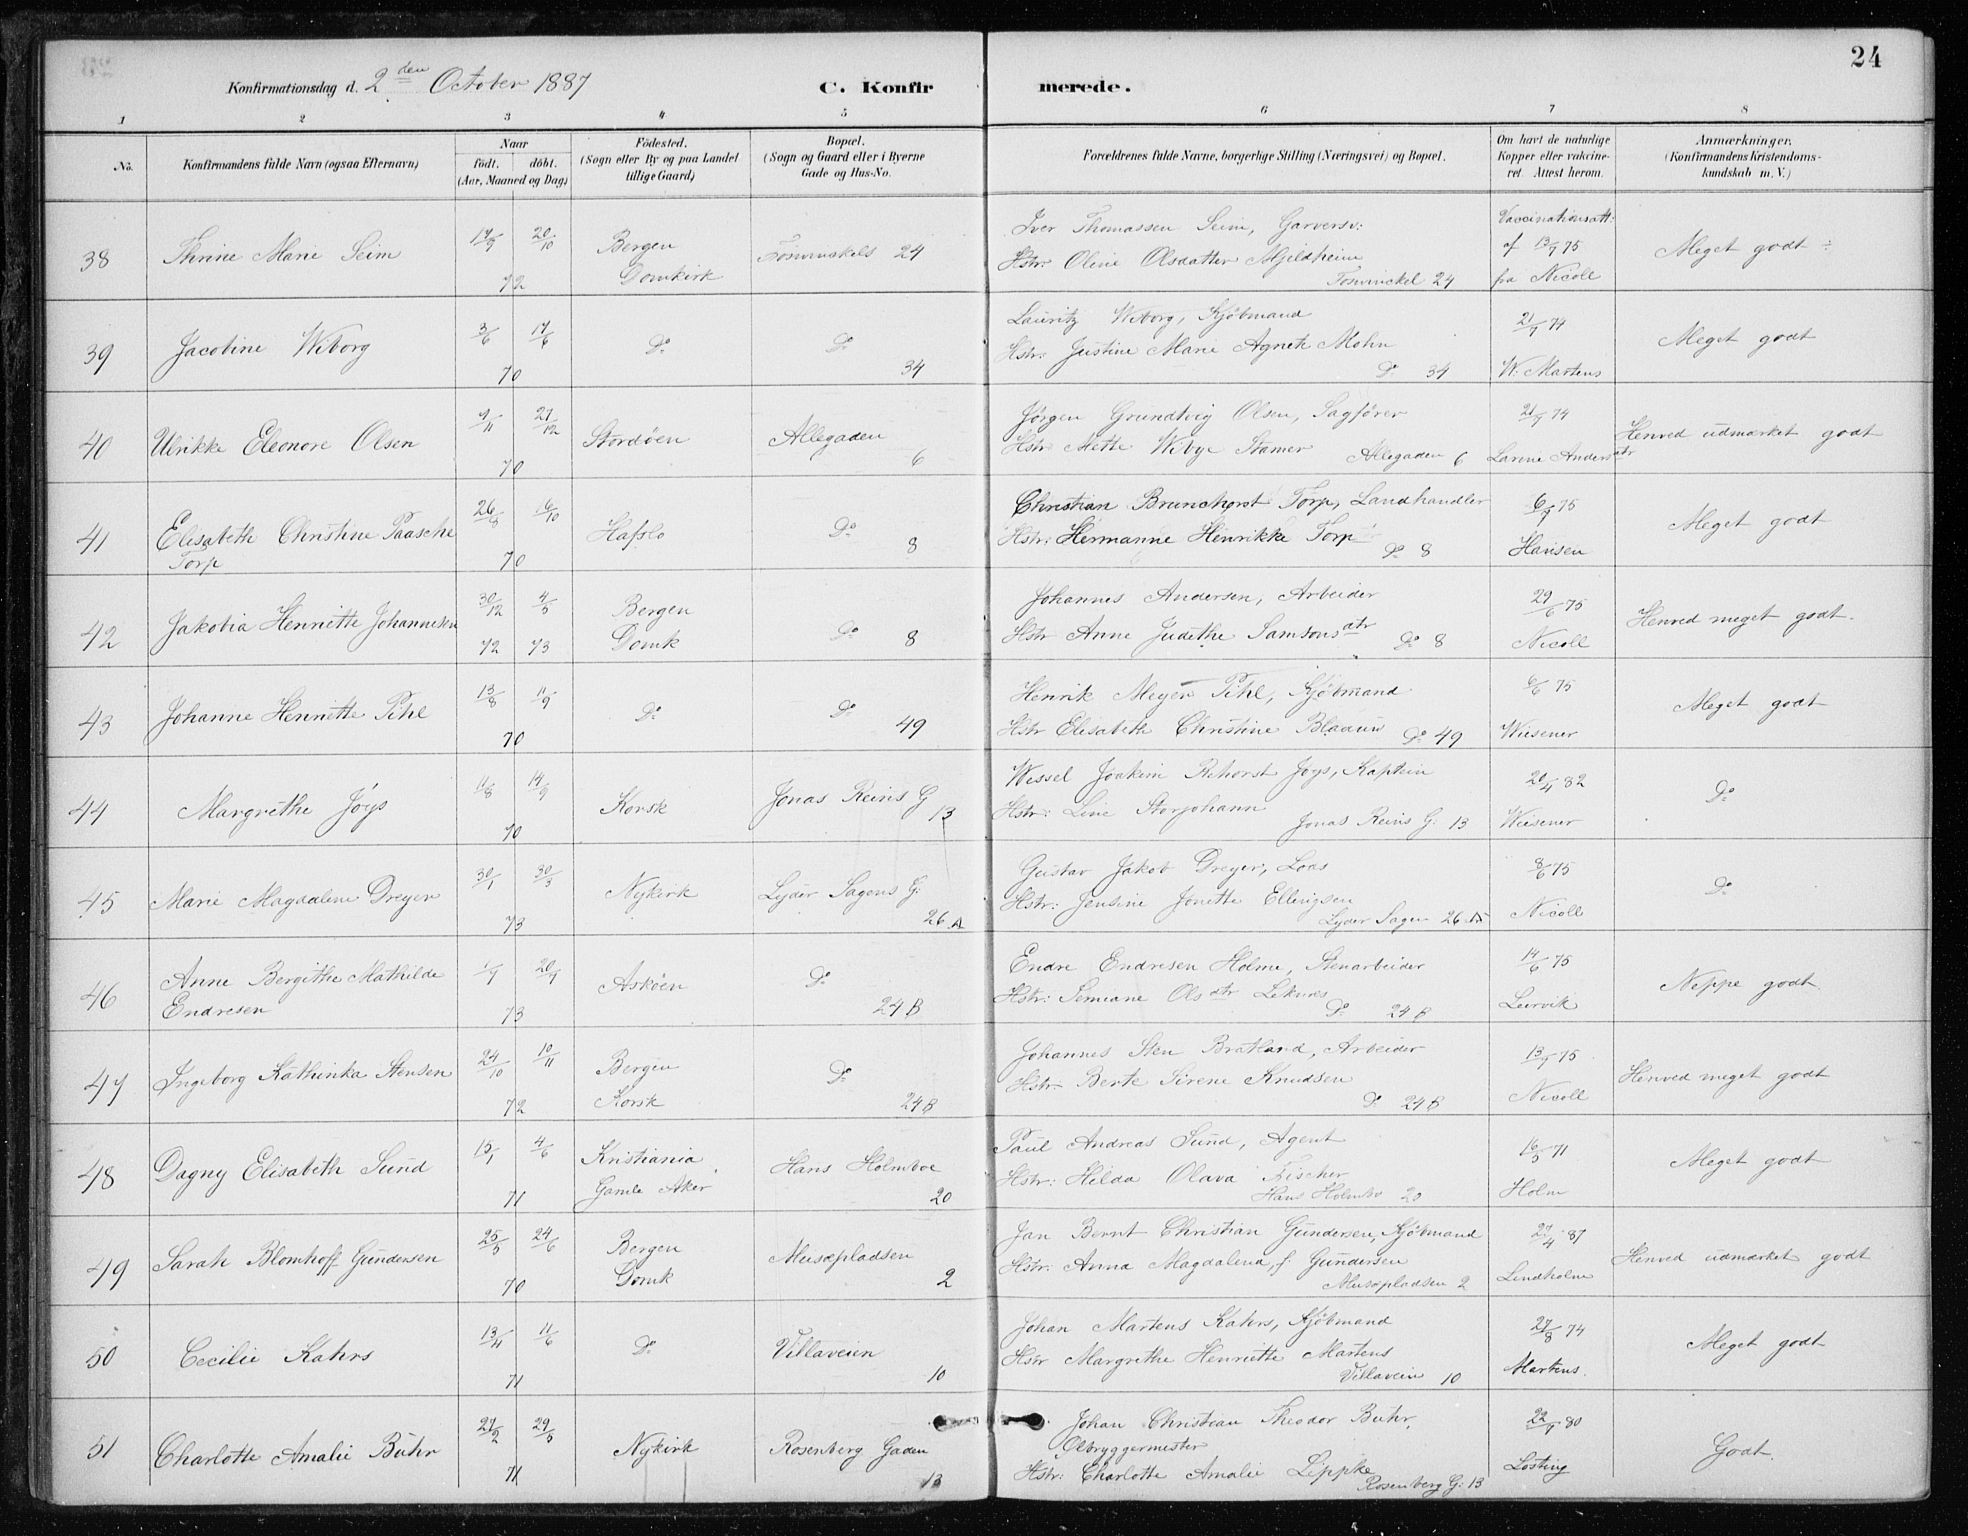 24
Konfirmationsdag d. 2den October 1887
C. Konfir
merede.
1 2 3 4 5 6 7 8
No.
Konfirmandens fulde Navn (ogsaa Efternavn)
Naar
født. döbt.
(Aar, Maaned og Dag)
Födested.
(Sogn eller By og paa Landet
tillige Gaard)
Bopæl.
(Sogn og Gaard eller i Byerne
Gade og Hus-No.
Forældrenes fulde Navne, borgerlige Stilling (Næringsvei) og Bopæl.
Om havt de naturlige
Kopper eller vakcine-
ret. Attest herom.
Anmærkninger.
(Konfirmandens Kristendoms-
kundskab m. V.)
38 Thrine Marie Seim
17/9 20/10
72
Bergen
Domkirk
24
Iver Thomassen Seim, Garversv:
Hstr: Oline Olsdatter Mjeldheim
24
Vaccinationsatt:
af 13/9 75
fra Nicoll
Meget godt ÷
39 Jacobine Wiborg
3/6 17/6
70
Do
Do
34
Lauritz Wiborg, Kjöbmand
Hstr: Justine Marie Agnete Mohn
Do 34
21/9 74
W: Martens
Meget godt
40 Ulrikke Eleonore Olsen
9/11 27/12
70
Stordöen
Allegaden
6
Jørgen Grundtvig Olsen, Sagförer
Hstr Mette Wibye Stamer
Allegaden 6
21/9 74
Larine Andersdtr
Henved udmærket godt
41 Elisabeth Christine Paasche
Torp
26/8 16/10
70
Hafslo
Do
8
Christian Brunchorst Torp, Landhandler
Hstr: Hermanne Henrikke Torp
Do 8
6/9 75
Hansen
Meget godt
42 Jakobia Henriette Johannesen
30/12 4/5
72 73
Bergen
Domk
Do
8
Johannes Andersen, Arbeider
Hstr Anne Judithe Samsonsdtr
Do 8
29/6 75
Nicoll
Henved meget godt.
43 Johanne Henriette Pihl
13/8 11/9
70
Do
Do
49
Henrik Meyer Pihl, Kjöbmand
Hstr Elisabeth Christine Blaauw
Do 49
6/6 75
Wiesener
Meget godt
44 Margrethe Jöys
11/8 14/9
70
Korsk
Jonas Reins G
13
Wessel Joakim Rehorst Joys, Kaptein
Hstr: Line Storjohann
Jonas Reins G: 13
20/4 82
Wiesener
Do
45 Marie Magdalene Dreyer
30/1 30/3
73
Nykirk
Lyder Sagens G:
26 A
Gustav Jakob Dreyer, Lods
Hstr: Jensine Jonette Ellingsen
Lyder Sagen 26 A
8/6 75
Nicoll
Do
46 Anne Bergithe Mathilde
Endresen
1/7 20/7
73
Asköen
Do
24 B
Endre Endresen Holme, Stenarbeider
Hstr: Semiane Olsdtr Leknes
Do 24 B
14/6 75
Leervik
Neppe godt
47 Ingeborg Kathinka Stensen
24/10 10/11
72
Bergen
Korsk
Do
24 B
Johannes Sten Bratland, Arbeider
Hstr Berte Sirene Knudsen
Do 24 B
13/9 75
Nicoll
Henved meget godt
48 Dagny Elisabeth Sund
15/1 4/6
71
Kristiania
Gamle Aker
Hans Holmboe
20
Paul Andreas Sund, Agent
Hstr: Hilda Olava Fischer
Hans Holmbo 20
16/5 71
Holm
Meget godt
49 Sarah Blomhoff Gundersen
25/5 24/6
70
Bergen
Domk
Musæpladsen
2
Jan Bernt Christian Gundersen, Kjöbmand
Hstr: Anna Magdalena f. Gundersen
Musæpladsen 2
27/4 87
Lindholm
Henved udmærket godt
50 Cecilie Kahrs
13/4 11/6
71
Do
Villaveien
10
Johan Martens Kahrs, Kjöbmand
Hstr Margrethe Henriette Martens
Villaveien 10
27/8 74
Martens.
Meget godt
51 Charlotte Amalie Buhr
27/2 29/5
71
Nykirk
Rosenberg Gaden
13
Johan Christian Theodor Buhr,
Ölbryggermester
Hstr: Charlotte Amalie Lippke
Rosenberg G: 13
22/9 80
Losting
Godt.